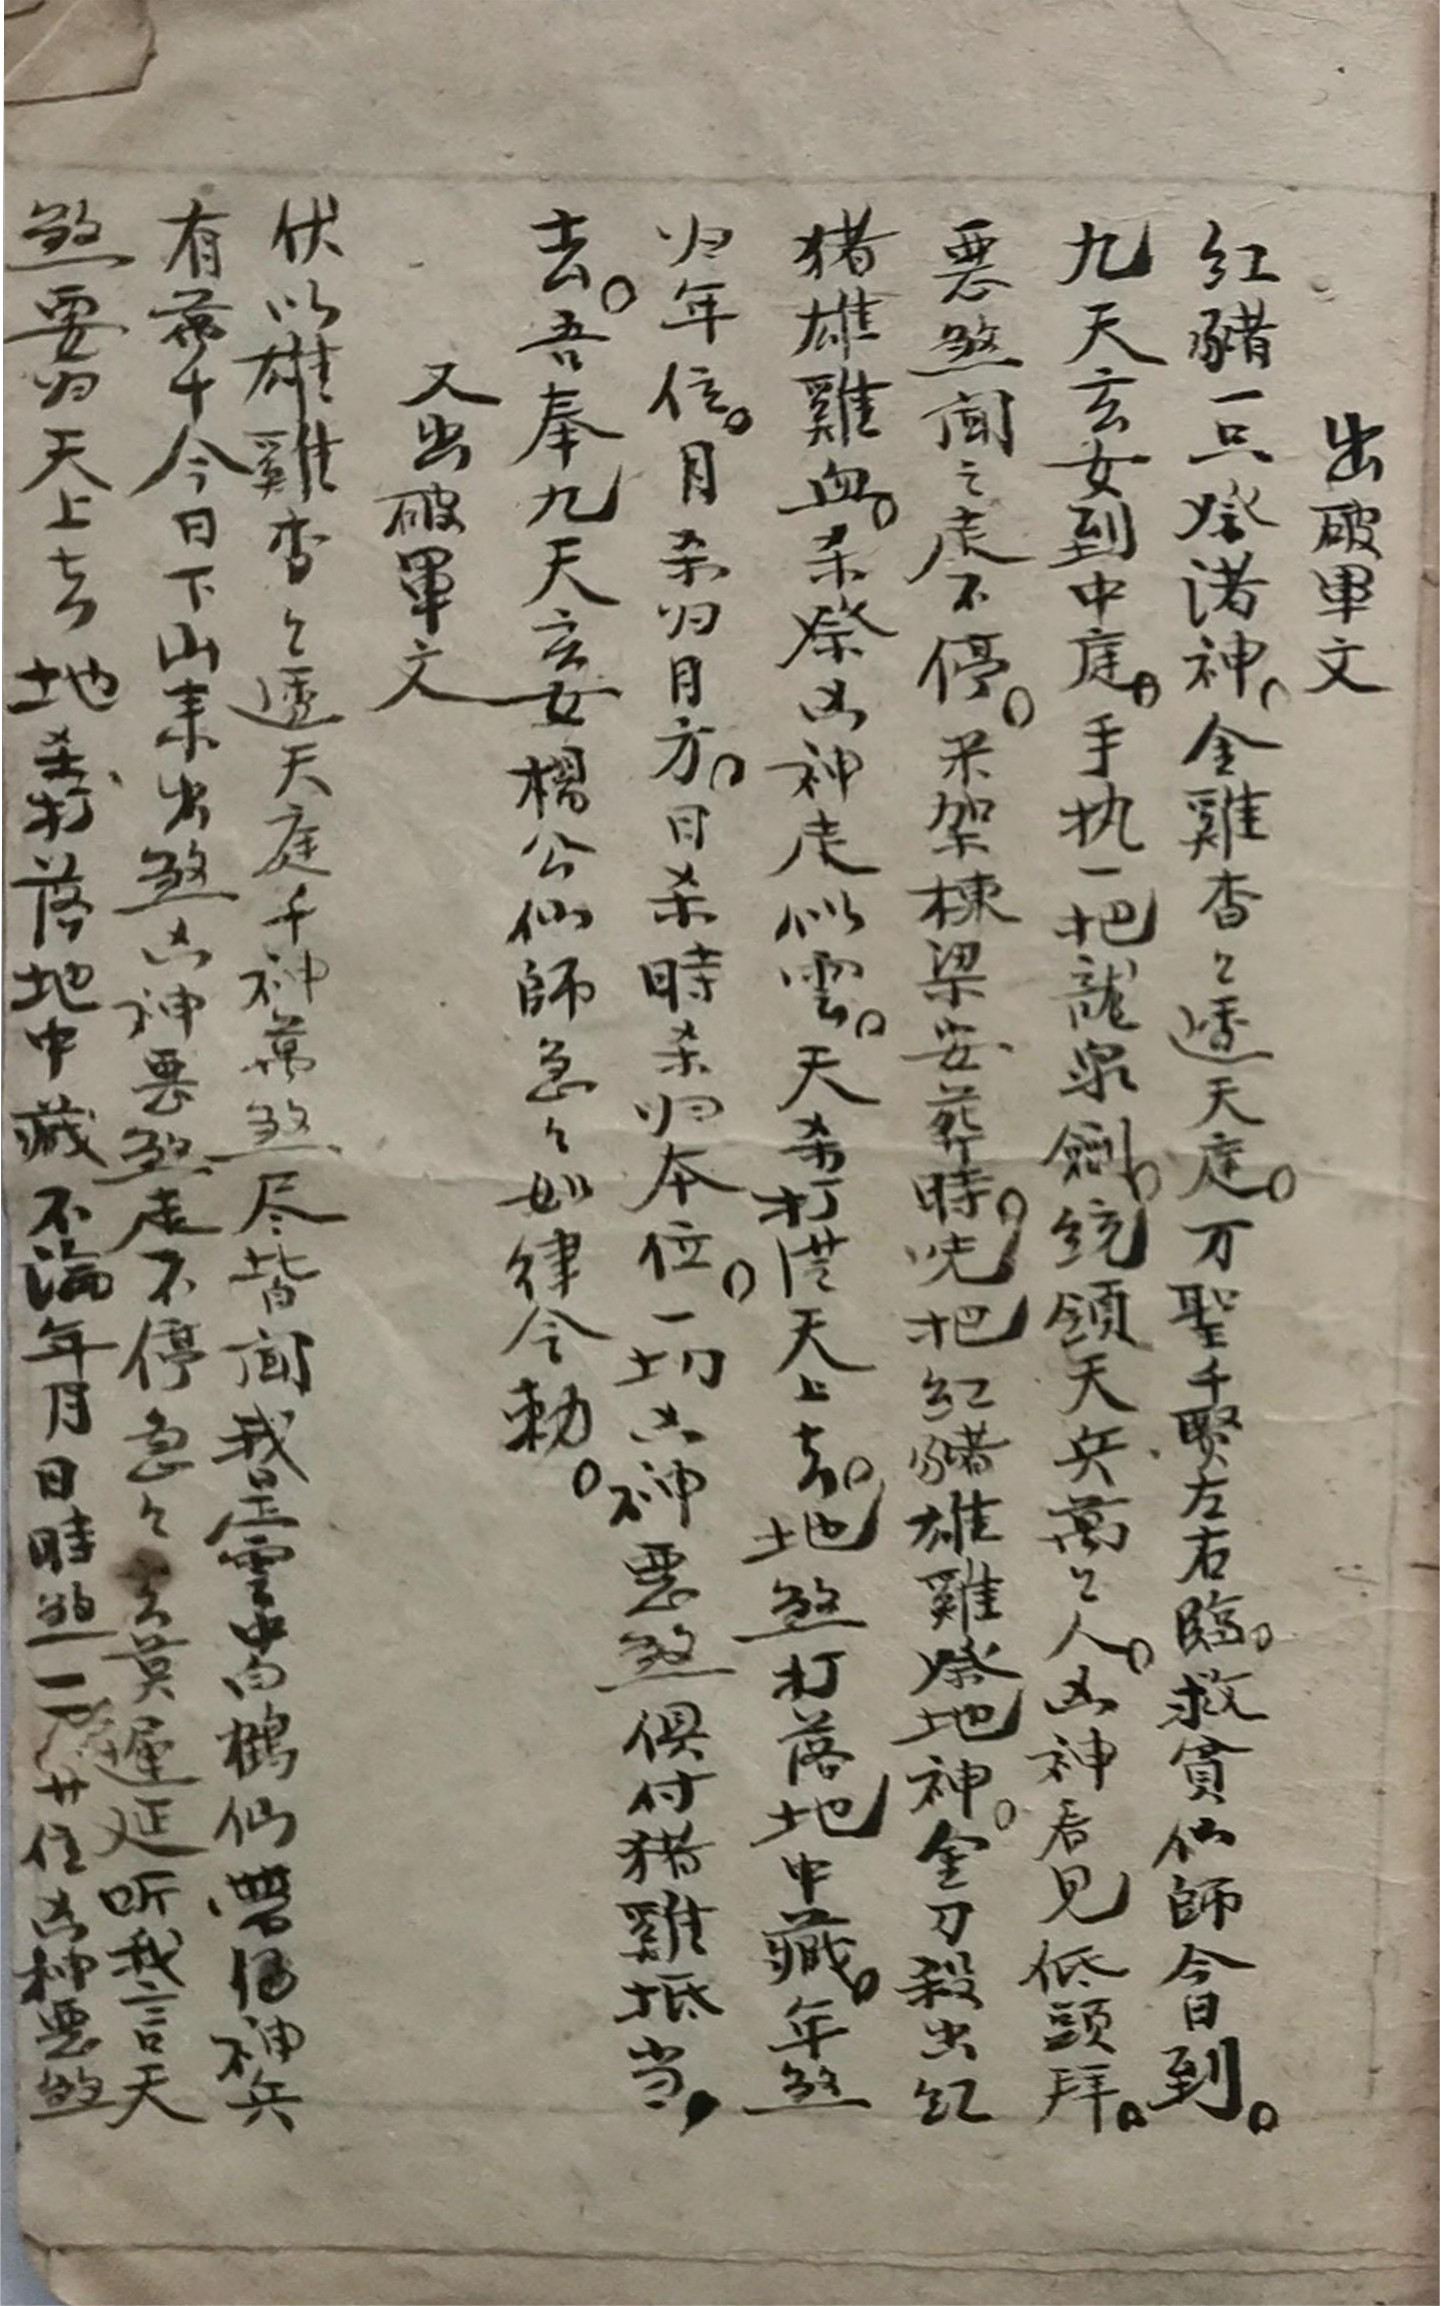 出破軍文
紅豬一只祭渚神。金雞杳々透天庭。万聖千賢左右臨。救貧仙師今日到。
九天玄女到中庭。手执一把龍泉劍。統領天兵萬々人。凶神看見低頭拜。
惡煞闻之走不停。采架棟梁安葬時。咒把紅豬雄雞祭地神。金刀殺出紅
猪雄雞血。杀祭凶神走似雲。天杀打從天上去。地煞打落地中藏。年煞
归年位。月杀归月方。日杀時杀归本位。一切凶神惡煞俱付猪雞抵当,
去。吾奉九天玄女楊公仙師急々如律令勅。
又出破軍文
伏以雄雞杳々透天庭千神萬煞尽皆闻我是雲中白鶴仙曾伺神兵
有萬千今日下山来出煞凶神惡煞走不停急々去莫遲延听我言天
煞要归天上去地杀打落地中藏不論年月日時煞一二廿位凶神惡煞